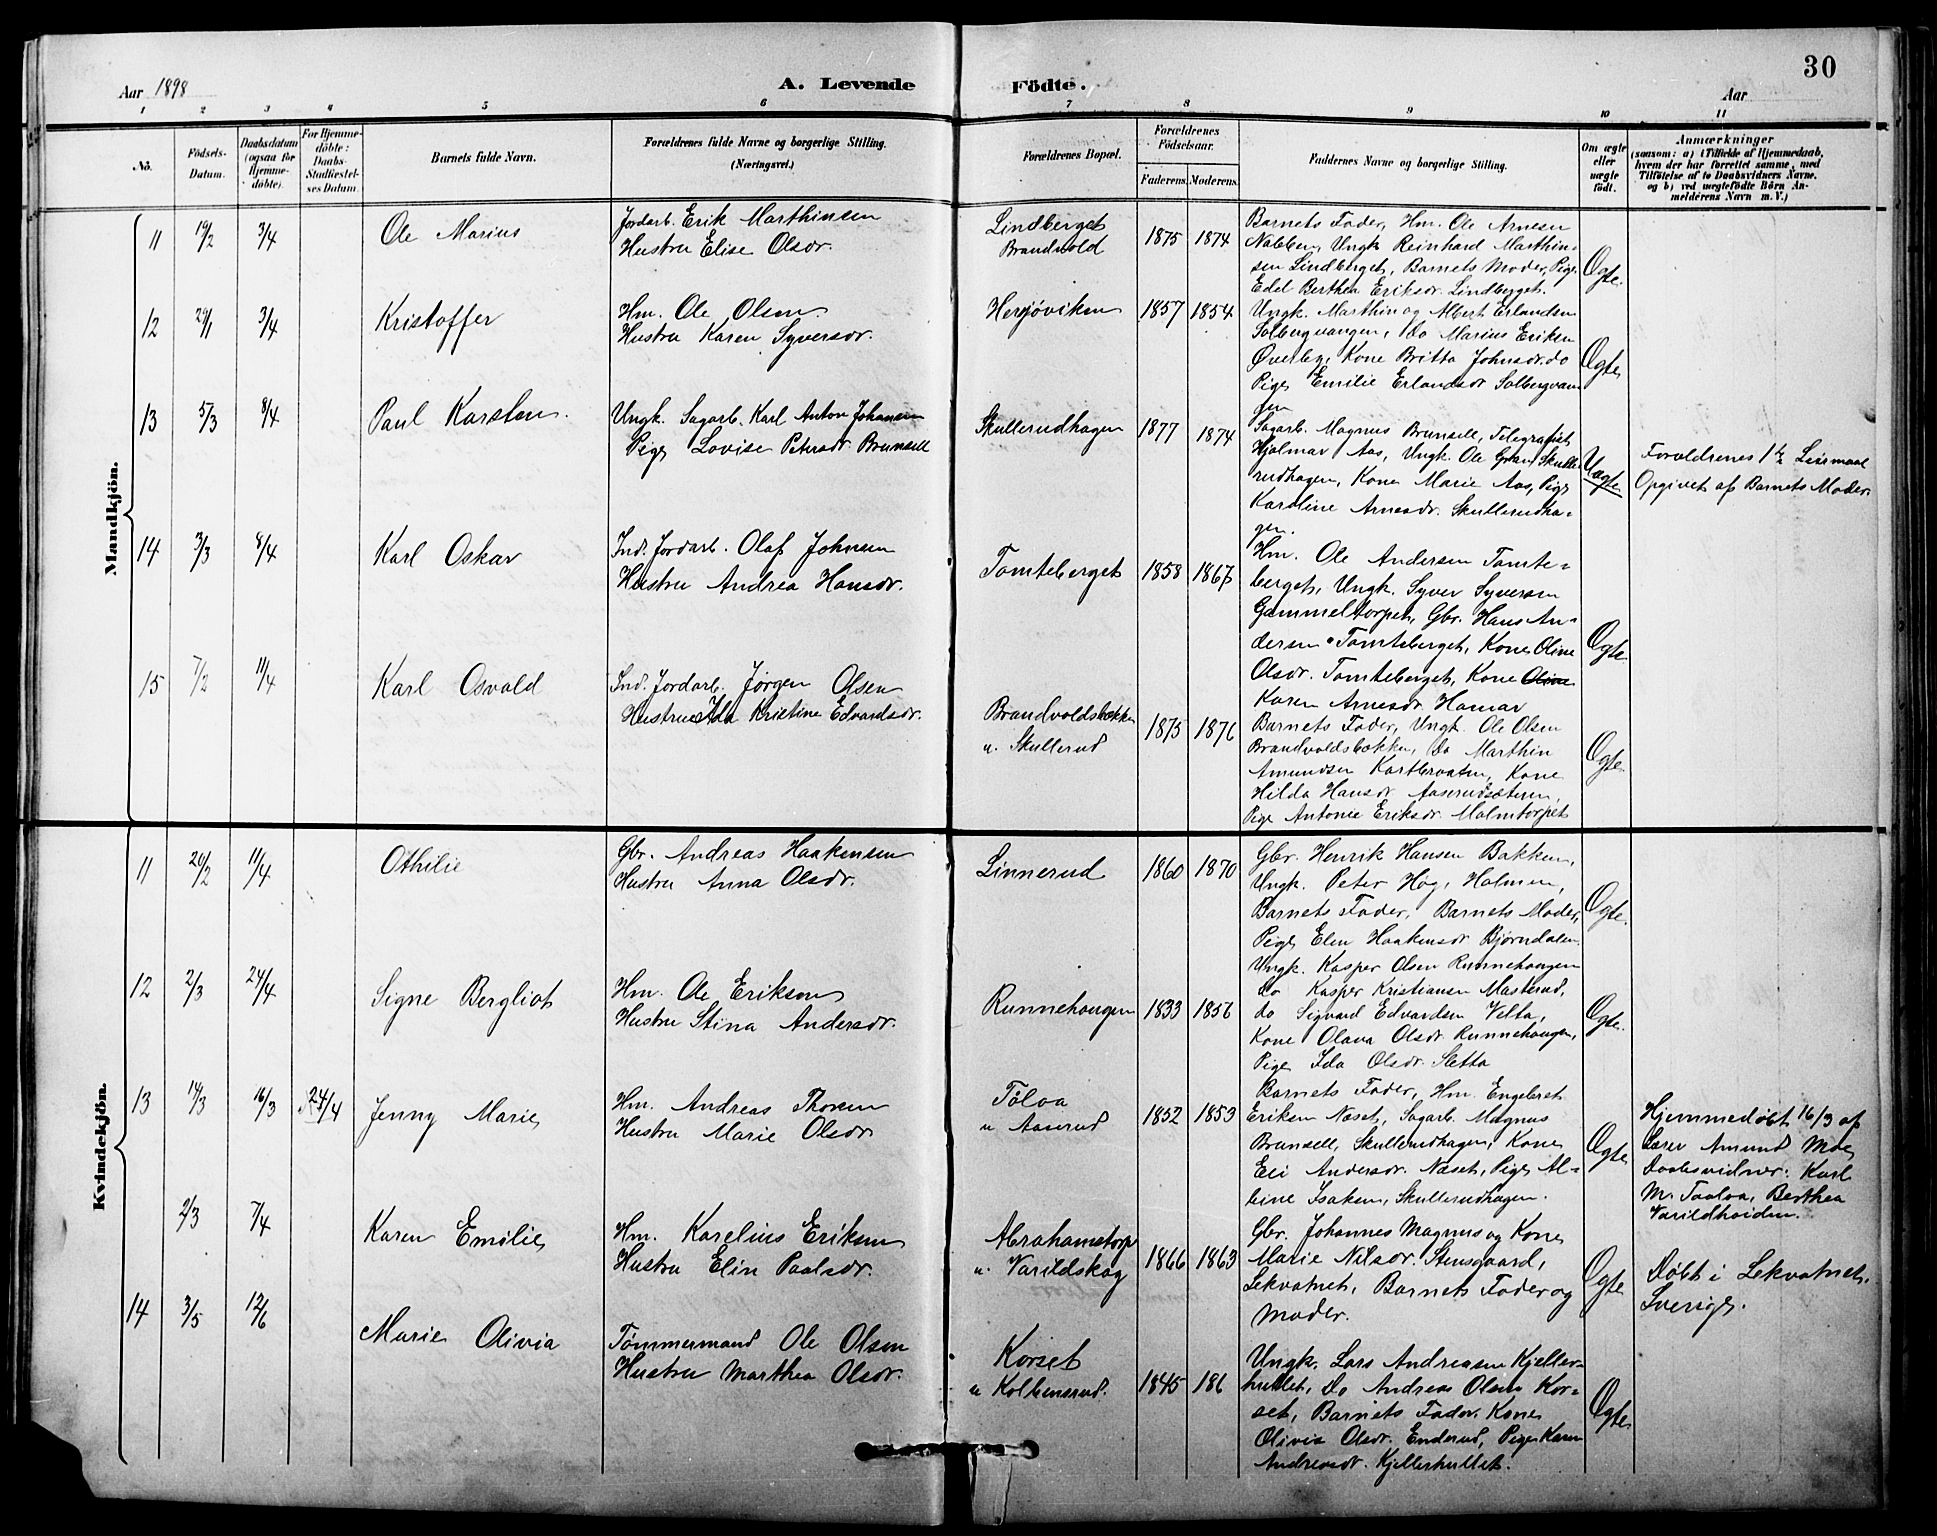 30
Aar 1898
A. Levende Födte.
Aar
1 2 3 4 5 6 7 8 9 10 11
No.
Födsels-Datum.
Daabsdatum (ogsaa for Hjemmedöbte).
For Hjemmedöbte: Daabs-Stadfæstelses Datum.
Barnets fulde Navn.
Forældrenes fulde Navne og borgerlige Stilling.
(Næringsvei.)
Forældrenes Bopæl.
Forældrenes Födselsaar.
Faderens. Moderens.
Faddernes Navne og borgerlige Stilling.
Om ægte eller uægte födt.
Anmærkninger
(saasom: a) i Tilfælde af Hjemmedaab,
hvem der har forrettet samme, med
Tilföielse af to Daabsvidners Navne,
og b) ved uægtefödte Börn An-
melderens Navn m. V.)
Mandkjön.
11 19/2 3/4 Ole Marius
Jordarb. Erik Marthinsen
Hustru Elise Olsdr.
Lindberget
Brandvold
1875 1874
Barnets Fader, Hm. Ole Arnesen
Nabben, Ungk. Reinhard Marthin-
sen Lindberget, Barnets Moder, Pige
Edel Berthea Eriksdr. Lindberget.
Ægte.
12 29/1 3/4 Kristoffer
Hm. Ole Olsen
Hustru Karen Syversdr.
Hersjöviken
1857 1854
Ungk. Marthin og Albert Erlandsen
Solbergvangen, Do Marius Eriksen
Øverby, Kone Britta Johnsdr. do
Pige Emilie Erlandsdr Solbergvan
gen
Ægte
13 5/3 8/4 Paul Karsten.
Ungk. Sagarb. Karl Anton Johansen
Pige Lovise Petersdr Brunsell
Skullerudhagen
1877 1874
Sagarb. Magnus Brunsell, Telegrafist
Hjalmar Aas, Ungk. Ole Gran Skulle
rudhagen, Kone Marie Aas, Pige
Karoline Arnesdr. Skullerudha-
gen.
Uægte
Forældrenes 1ste Leiermaal
Opgivet af Barnets Moder.
14 3/3 8/4 Karl Oskar
Ind. Jordarb. Olaf Johnsen
Hustru Andrea Hansdr.
Tomteberget
1858 1867
Hm. Ole Andersen Tomte-
berget, Ungk. Syver Syversen
Gammeltorpet, Gbr. Hans An-
dersen Tomteberget, Kone Oline
Olsdr. Tomteberget, Kone Oline
Karen Arnesdr Hamar
Ægte
15 7/2 11/4 Karl Osvald
Ind. Jordarb. Jørgen Olsen
Hustru Ida Kristine Edvardsdr.
Brandvoldsbækken
u. Skullerud
1875 1876
Barnets Fader, Ungk. Ole Olsen
Brandvoldsbækken, Do Marthin
Amundsen Kartbraaten, Kone
Hilda Hansdr Aaserudsæteren,
Pige Antonie Eriksdr. Malmtorpet
Ægte.
Kvindekjön.
11 20/2 11/4 Othilie
Gbr. Andreas Haakensen
Hustru Anna Olsdr.
Linnerud
1860 1870
Gbr. Henrik Hansen Bakken,
Ungk. Peter Hog, Holmen,
Barnets Fader, Barnets Moder,
Pige Elen Haakensdr Bjørndalen
Ægte.
12 2/3 24/4 Signe Bergliot
Hm. Ole Eriksen
Hustru Stina Andersdr.
Runnehaugen
1833 1856
Ungk. Kasper Olsen Runnehaugen
do Kasper Kristiansen Masterud,
do Sigvard Edvardsen Velta,
Kone Olava Olsdr Runnehaugen,
Pige Ida Olsdr. Sletta
Ægte.
13 14/3 16/3 24/4 Jenny Marie
Hm. Andreas Thoresen
Hustru Marie Olsdr
Tölva
u Aaserud
1852 1853
Barnets Fader, Hm. Engebret
Eriksen Næset, Sagarb. Magnus
Brunsell, Skullerudhagen, Kone
Eli Andersdr. Næset, Pige Al-
bine Isaksen, Skullerudhagen.
Ægte
Hjemmedøbt 16/3 af
Lærer Amund Moe
Daabsvidner: Karl
M. Taalva, Berthea
Varildheiden.
2/3 7/4 Karen Emilie
Hm. Karelius Eriksen
Hustru Elin Paalsdr.
Abrahamstorp
u. Varildskog
1866 1863
Gbr. Johannes Magnus og Kone
Marie Nilsdr. Stensgaard,
Lekvatnet, Barnets Fader og
Moder.
Ægte
Døbt i Lekvatnet,
Sverige.
14 3/5 12/6 Marie Olivia
Tömmermand Ole Olsen
Hustru Marthea Olsdr.
Korset
u Kolbenserud.
1845 186
Ungk. Lars Andreasen Kjeller-
hullet, Do Andreas Olsen Kor-
set, Barnets Fader. Kone
Olivia Olsdr. Enderud, Pige Karen
Andreasdr. Kjellerhullet.
Ægte